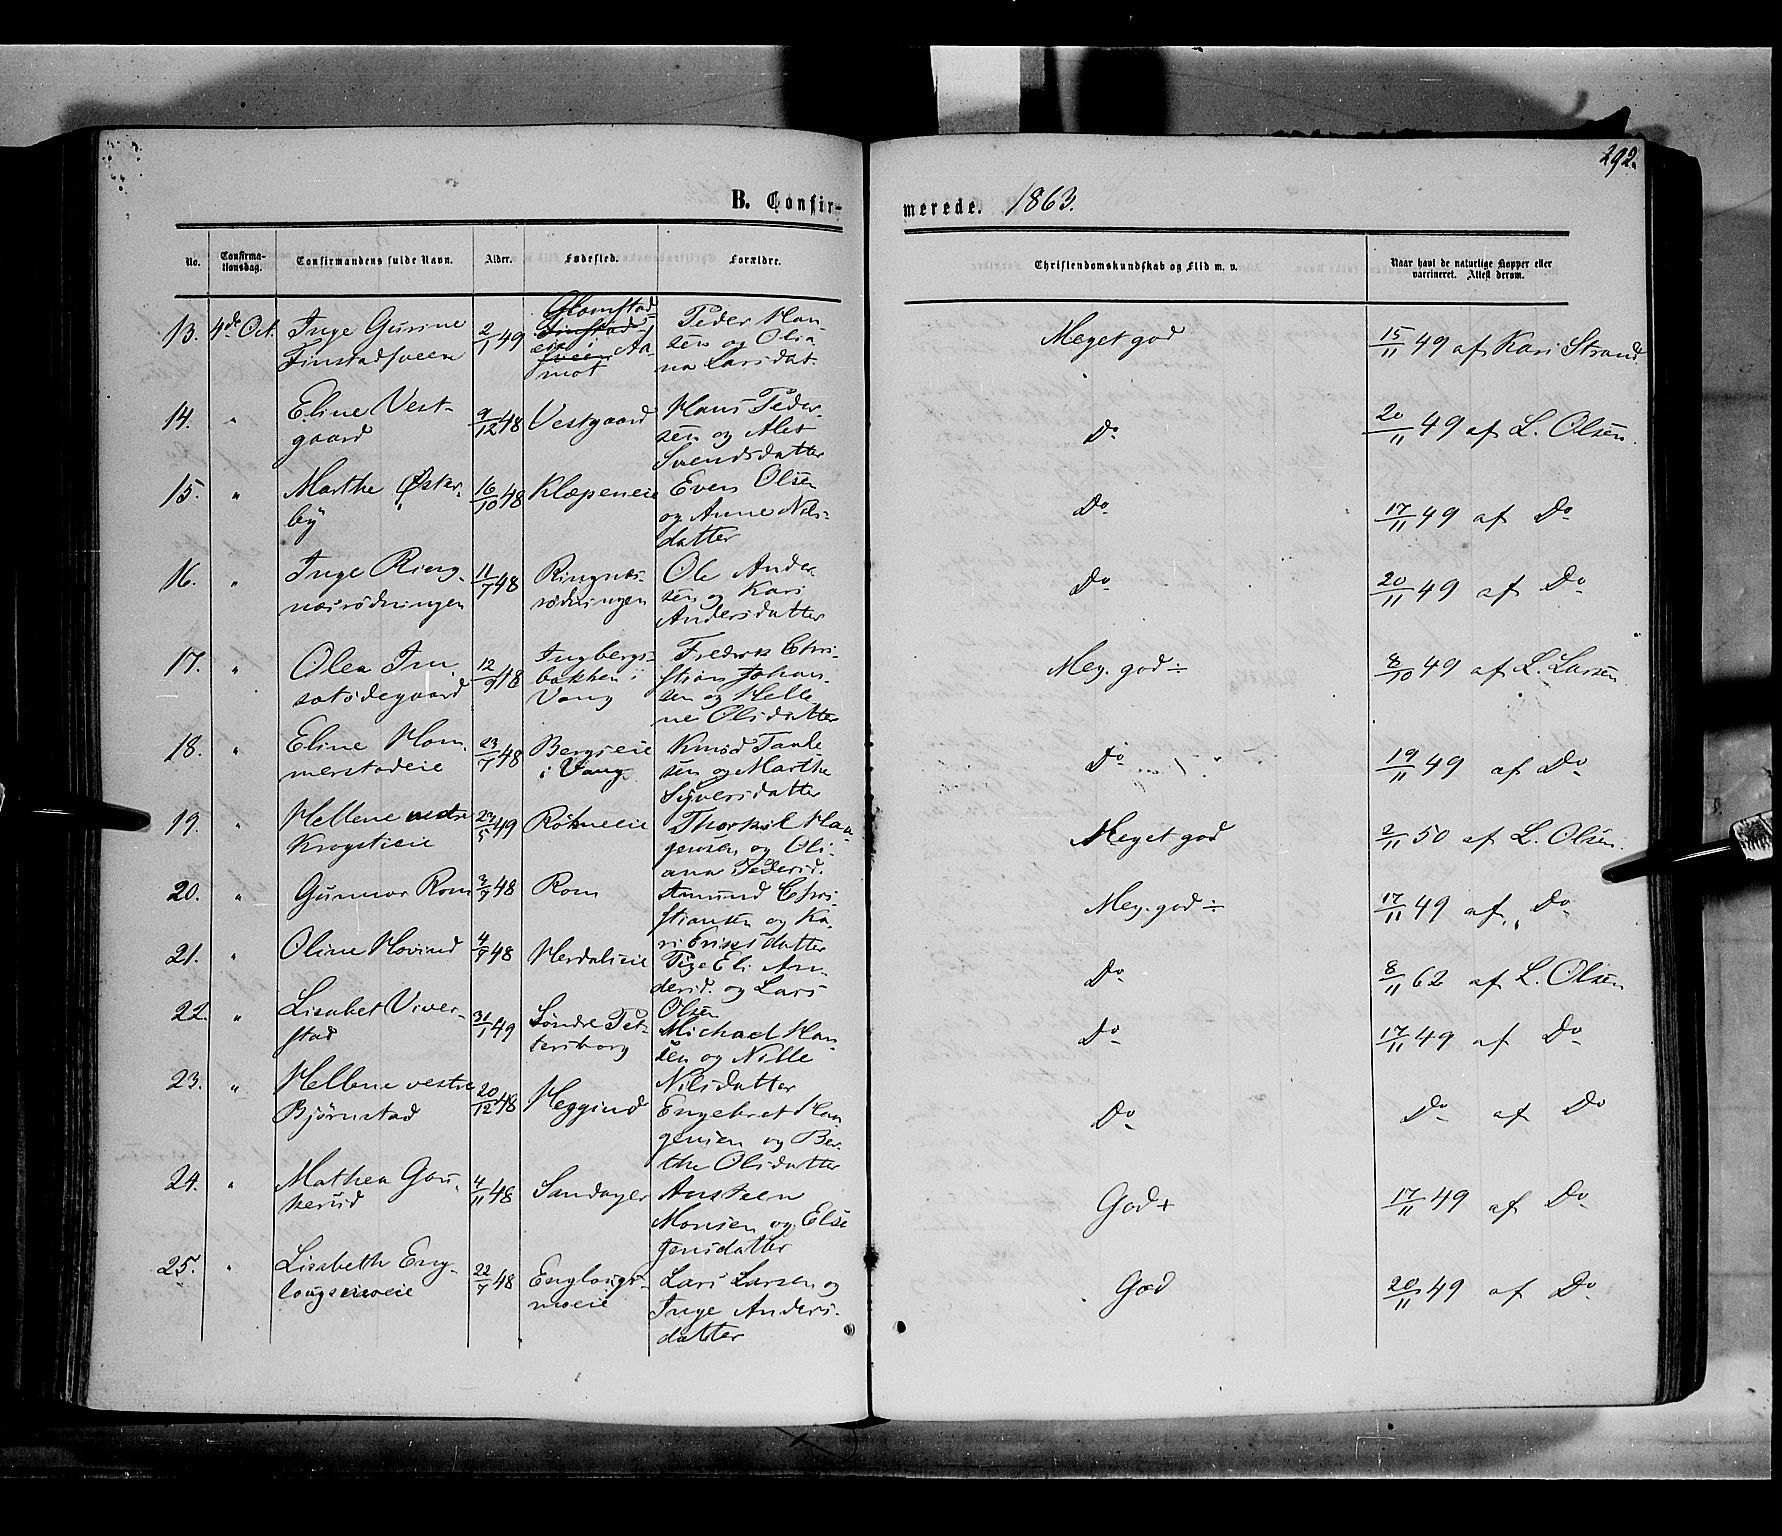 292.
B. Confir-
merede. 1863.
No.
Confirma-
tionsdag.
Confirmandens fulde Navn.
Alder.
Fødested.
Forældre.
Christendomskundskab og Flid m. v.
Naar havt de naturlige Kopper eller
vaccineret. Attest derom.
13. 4de Oct. Inge Gusine
Finstadsveen
2/1 49
Glomstad-
Finstads-
eie i Aa-
sveen
mot
Peder Han-
sen og Olia-
na Larsdat.
Meget god
15/11 49 af Kari Strand
14. " Eline Vest-
gaard
9/12 48 Vestgaard
Hans Peder-
sen og Alet
Svendsdatter
Do
20/11 49 af L. Olsen.
15. " Marthe Øster-
by
16/10 48 Klæpeneie
Even Olsen
og Anne Nils-
datter
Do
17/11 49 af Do
16. " Inge Ring-
næsrødningen
11/7 48 Ringnæs-
rødningen
Ole Ander-
sen og Kari
Andersdatter
Do
20/11 49 af Do
17. " Olea Im-
satødegaard
12/9 48 Ingbergs-
bakken i
Vang
Fredrik Chri-
stian Johan-
sen og Helle-
ne Olsdatter
Meg. god ÷
8/10 49 af L. Larsen
18. " Eline Hom-
merstadeie
23/7 48 Bergseie
i Vang
Knud
sen og Marthe
Syversdatter
Do
19/11 49 af Do
19. " Hellene nedre
Krogstieie
49 Røkneeie
Thorkil Haa-
gensen og Oli-
ana Pedersd.
Meget god
2/11 50 af L. Olsen.
20. " Gunnor Rom
48 Rom
Amund Chri-
stiansen og Ka-
ri Eriksdatter
Meg. god ÷
17/11 49 af Do
21. " Oline Hovind
48 Herdalseie
Pige Eli An-
dersd. og Lars
Olsen
Do
8/11 62 af L. Olsen
22. " Lisabet Viver-
stad
31/1 49 Søndre Pet-
tersborg
Michael Han-
sen og Nille
Nilsdatter
Do
17/11 49 af Do
23. " Hellene vestre
Bjørnstad
20/12 48 Heggind
Engebret Haa-
gensen og Ber-
the Olsdatter
Do
Do af Do
24. " Mathea Gau-
kerud
4/11 48 Sandager
Austeen
Monsen og Else
Jensdatter
God +
17/11 49 af Do
25. " Lisabeth Eng-
laugsmoeie
22/7 48 Englaugs-
moeie
Lars Larsen og
Inge Anders-
datter
God
20/11 49 af Do